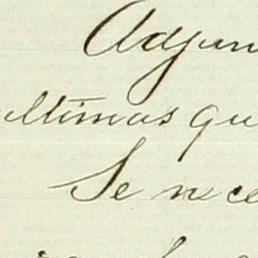 Adjun
ultimas qu
Se nece